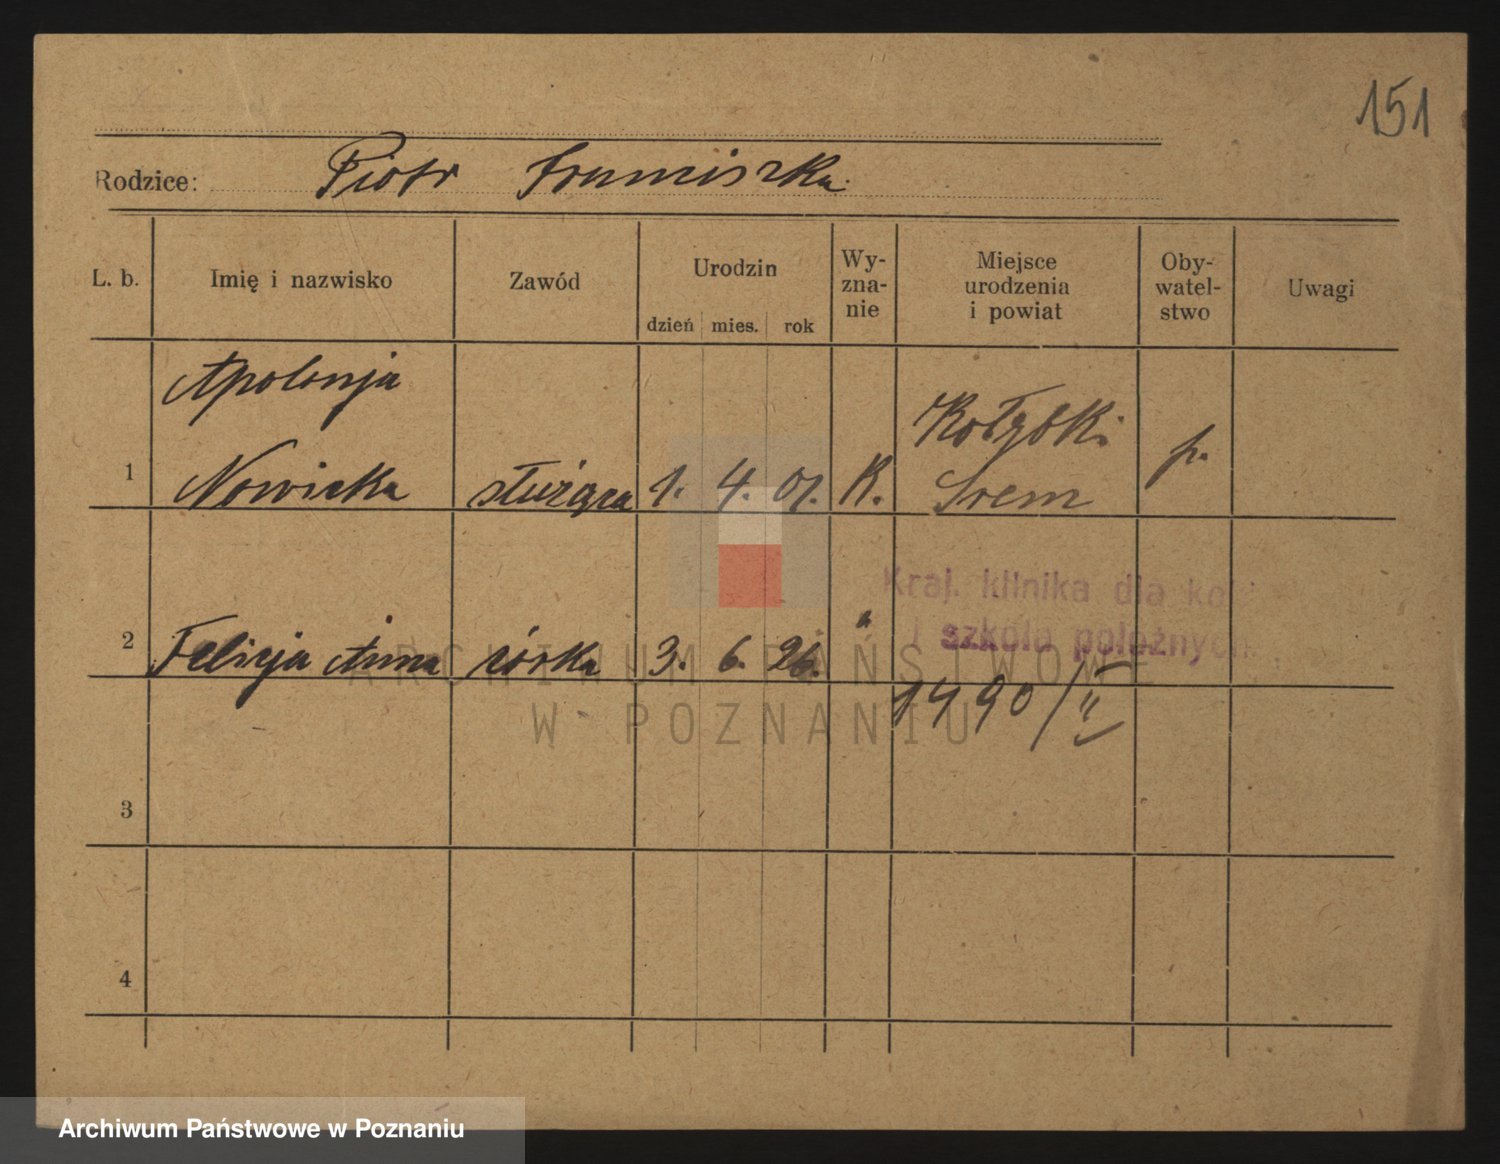 151
Rodzice: Piotr Franciszka
L. b. Imię i nazwisko Zawód Urodzin dzień mies. rok Wy-zna-nie Miejsce urodzenia i powiat Oby-watel-stwo Uwagi
Apolonja
Kołybki
1 Nowicka służąca 1. 4. 01. K. Śrem p.
Kraj. klinika dla kob
i szkoła położnych
2 Felicja Anna córka 3. 6. 26. "
1490/II
3
4
ARCHIWUM PAŃSTWOWE
W POZNANIU
Archiwum Państwowe w Poznaniu